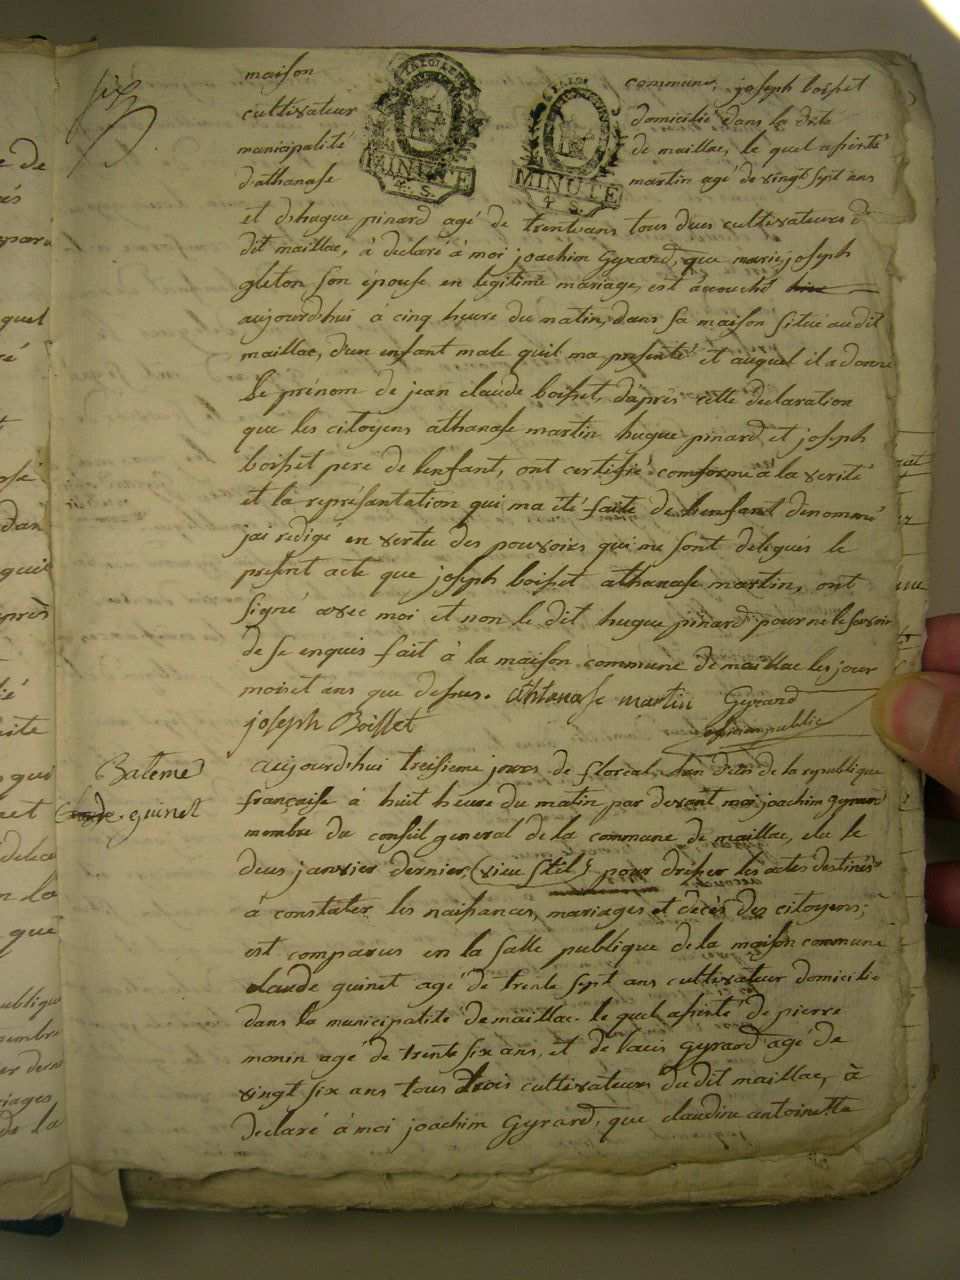 six
maison commune, joseph boisset
cultivateur domicilié dans la dite
municipalité de maillac, le quel assisté
d'athanase martin agé de vingt sept ans
et d'hugue pinard agé de trente ans tous deus cultivateurs
dit maillac, à declaré à moi joachim Gyrard, que marie joseph
gleton son épouse en legitime mariage, est acouché
aujourd'hui à cinq heure du matin, dans sa maison situé audit
maillac, d'un enfant male quil ma presenté et auquel il a donné
le prénom de jean claude boisset, d'après cette declaration
que les citoyens athanase martin hugue pinard et joseph
boisset pere de lenfant, ont certifié comforme à la verité
et la représantation qui ma été faite de lenfant denommé
jai redigé en vertu des pouvoirs qui me sont delegués le
présent acte que joseph boisset athanase martin, ont
signé avec moi et non le dit hugue pinard pour ne le savoir
de se enquis fait à la maison commune de maillac les jour
mois et ans que desus. athanase martin Gyrard
joseph Boisset public
Bateme
guinet
aujourd'hui treisieme jours de floreal de la republique
française à huit heure du matin par devant moi joachim gyrard
membre du conseil general de la commune de maillac, elu le
deus janvier dernier (vieu stil) pour dresser les actes destinés
à constater les naissances, mariages et décès des citoyens;
est comparus en la salle publique de la maison commune
claude guinet agé de trente sept ans cultivateur domicilié
dans la municipalité de maillac. le quel assisté de pierre
monin agé de trente six ans, et de louis gyrard agé de
vingt six ans tous trois cultivateurs du dit maillac, à
declaré à moi joachim Gyrard, que claudine antoinette
MINUTE
MINUTE